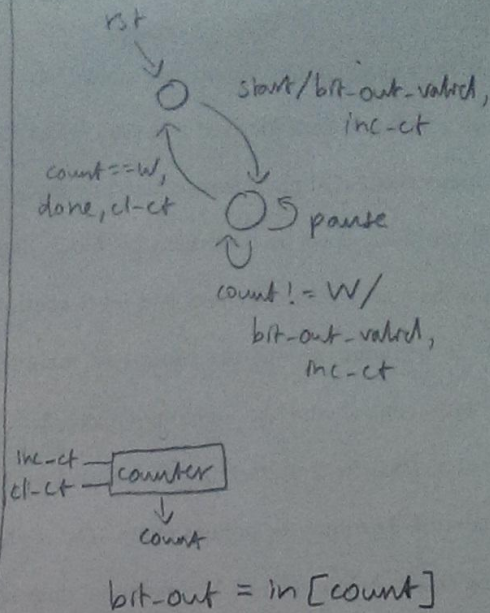 rst
start/bit_out_valid,
inc-ct
count==W,
done, cl-ct
pause
count!=W/
bit-out_valid,
inc-ct
inc-ct
cl-ct
counter
count
bit-out = in [count]